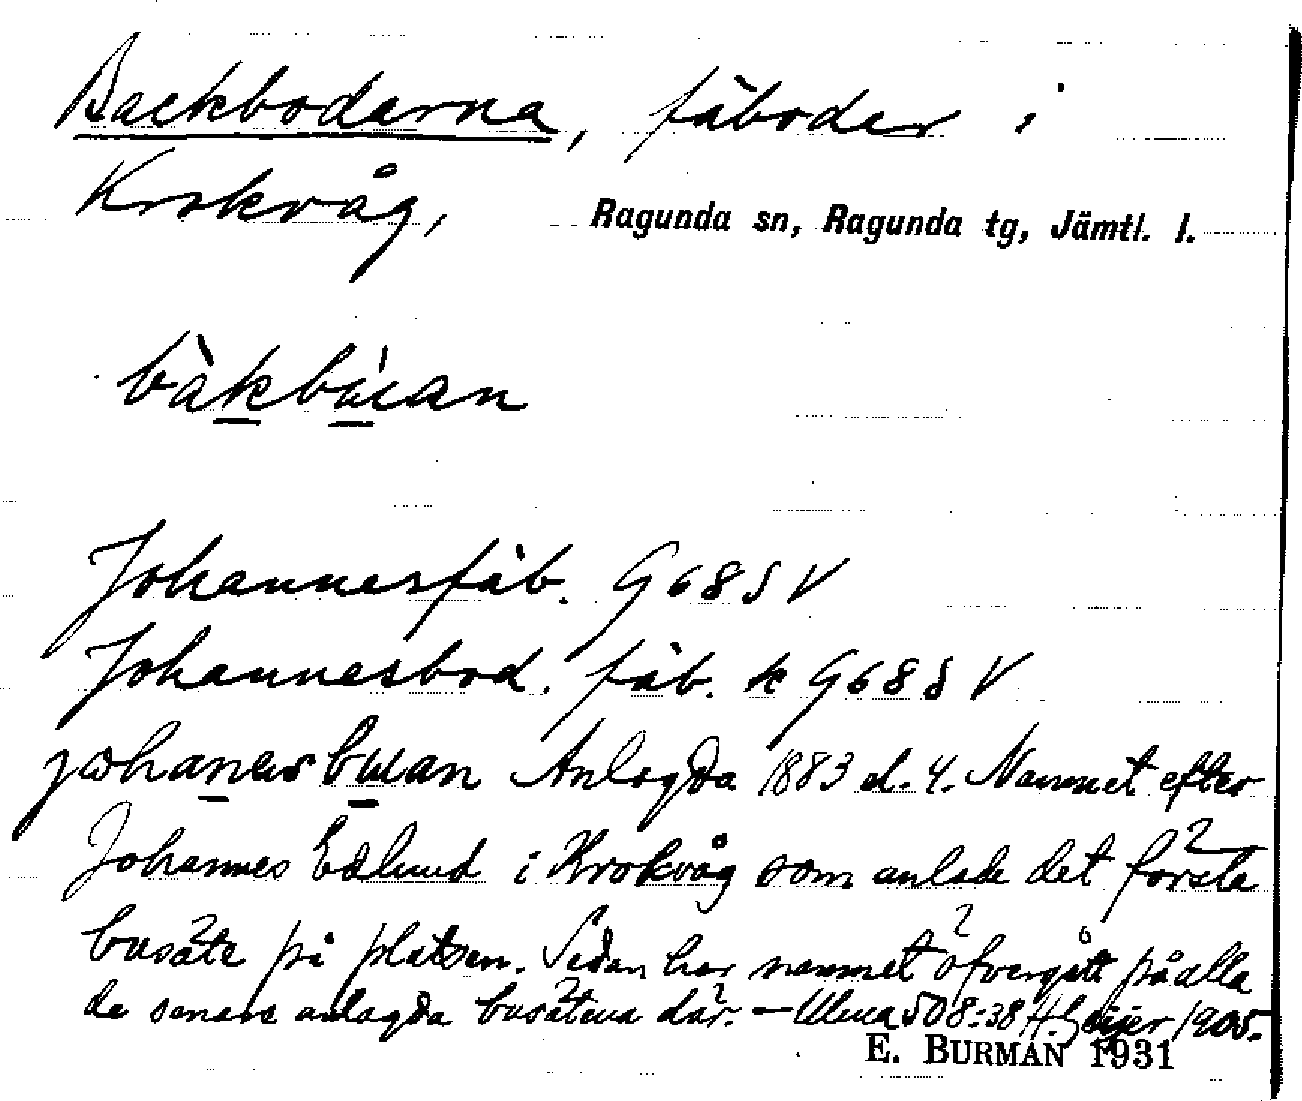 Backbodarna, fäboder i
Krokvåg, Ragunda sn, Ragunda tg, Jämtl. l.
Johannesfäb. G 68 S V
Johannesbod. fäb. k G 68 S V
Anlagda 1883 d. 4. Namnet efter
Johannes Edlund i Krokvåg som anlade det första
busäte på platsen. Sedan har namnet öfvergått på alla
de senare anlagda busätena där. – Ulma 508:38 H. Geijer 1905.
E. BURMAN 1931